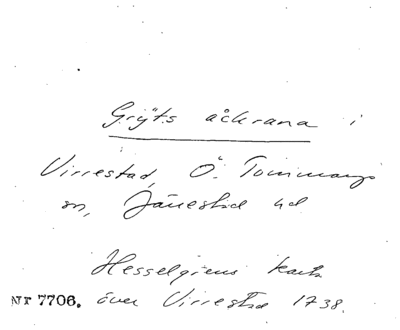 Gryts åckrana i
Virrestad, Ö. Tommarps
sn, Järrestad hd
Hesselgrens karta
Nr 7706. över Virrestad 1738.